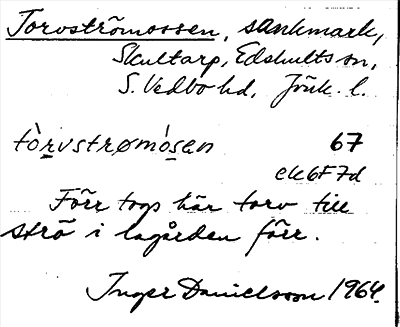 Torvströmossen, sankmark,
Skultarp, Edshults sn,
S. Vedbo hd, Jönk. l.
tòrvstrømósen 67
ek6F7d
Förr togs här torv till
strö i lagården förr.
Inger Danielsson 1964.